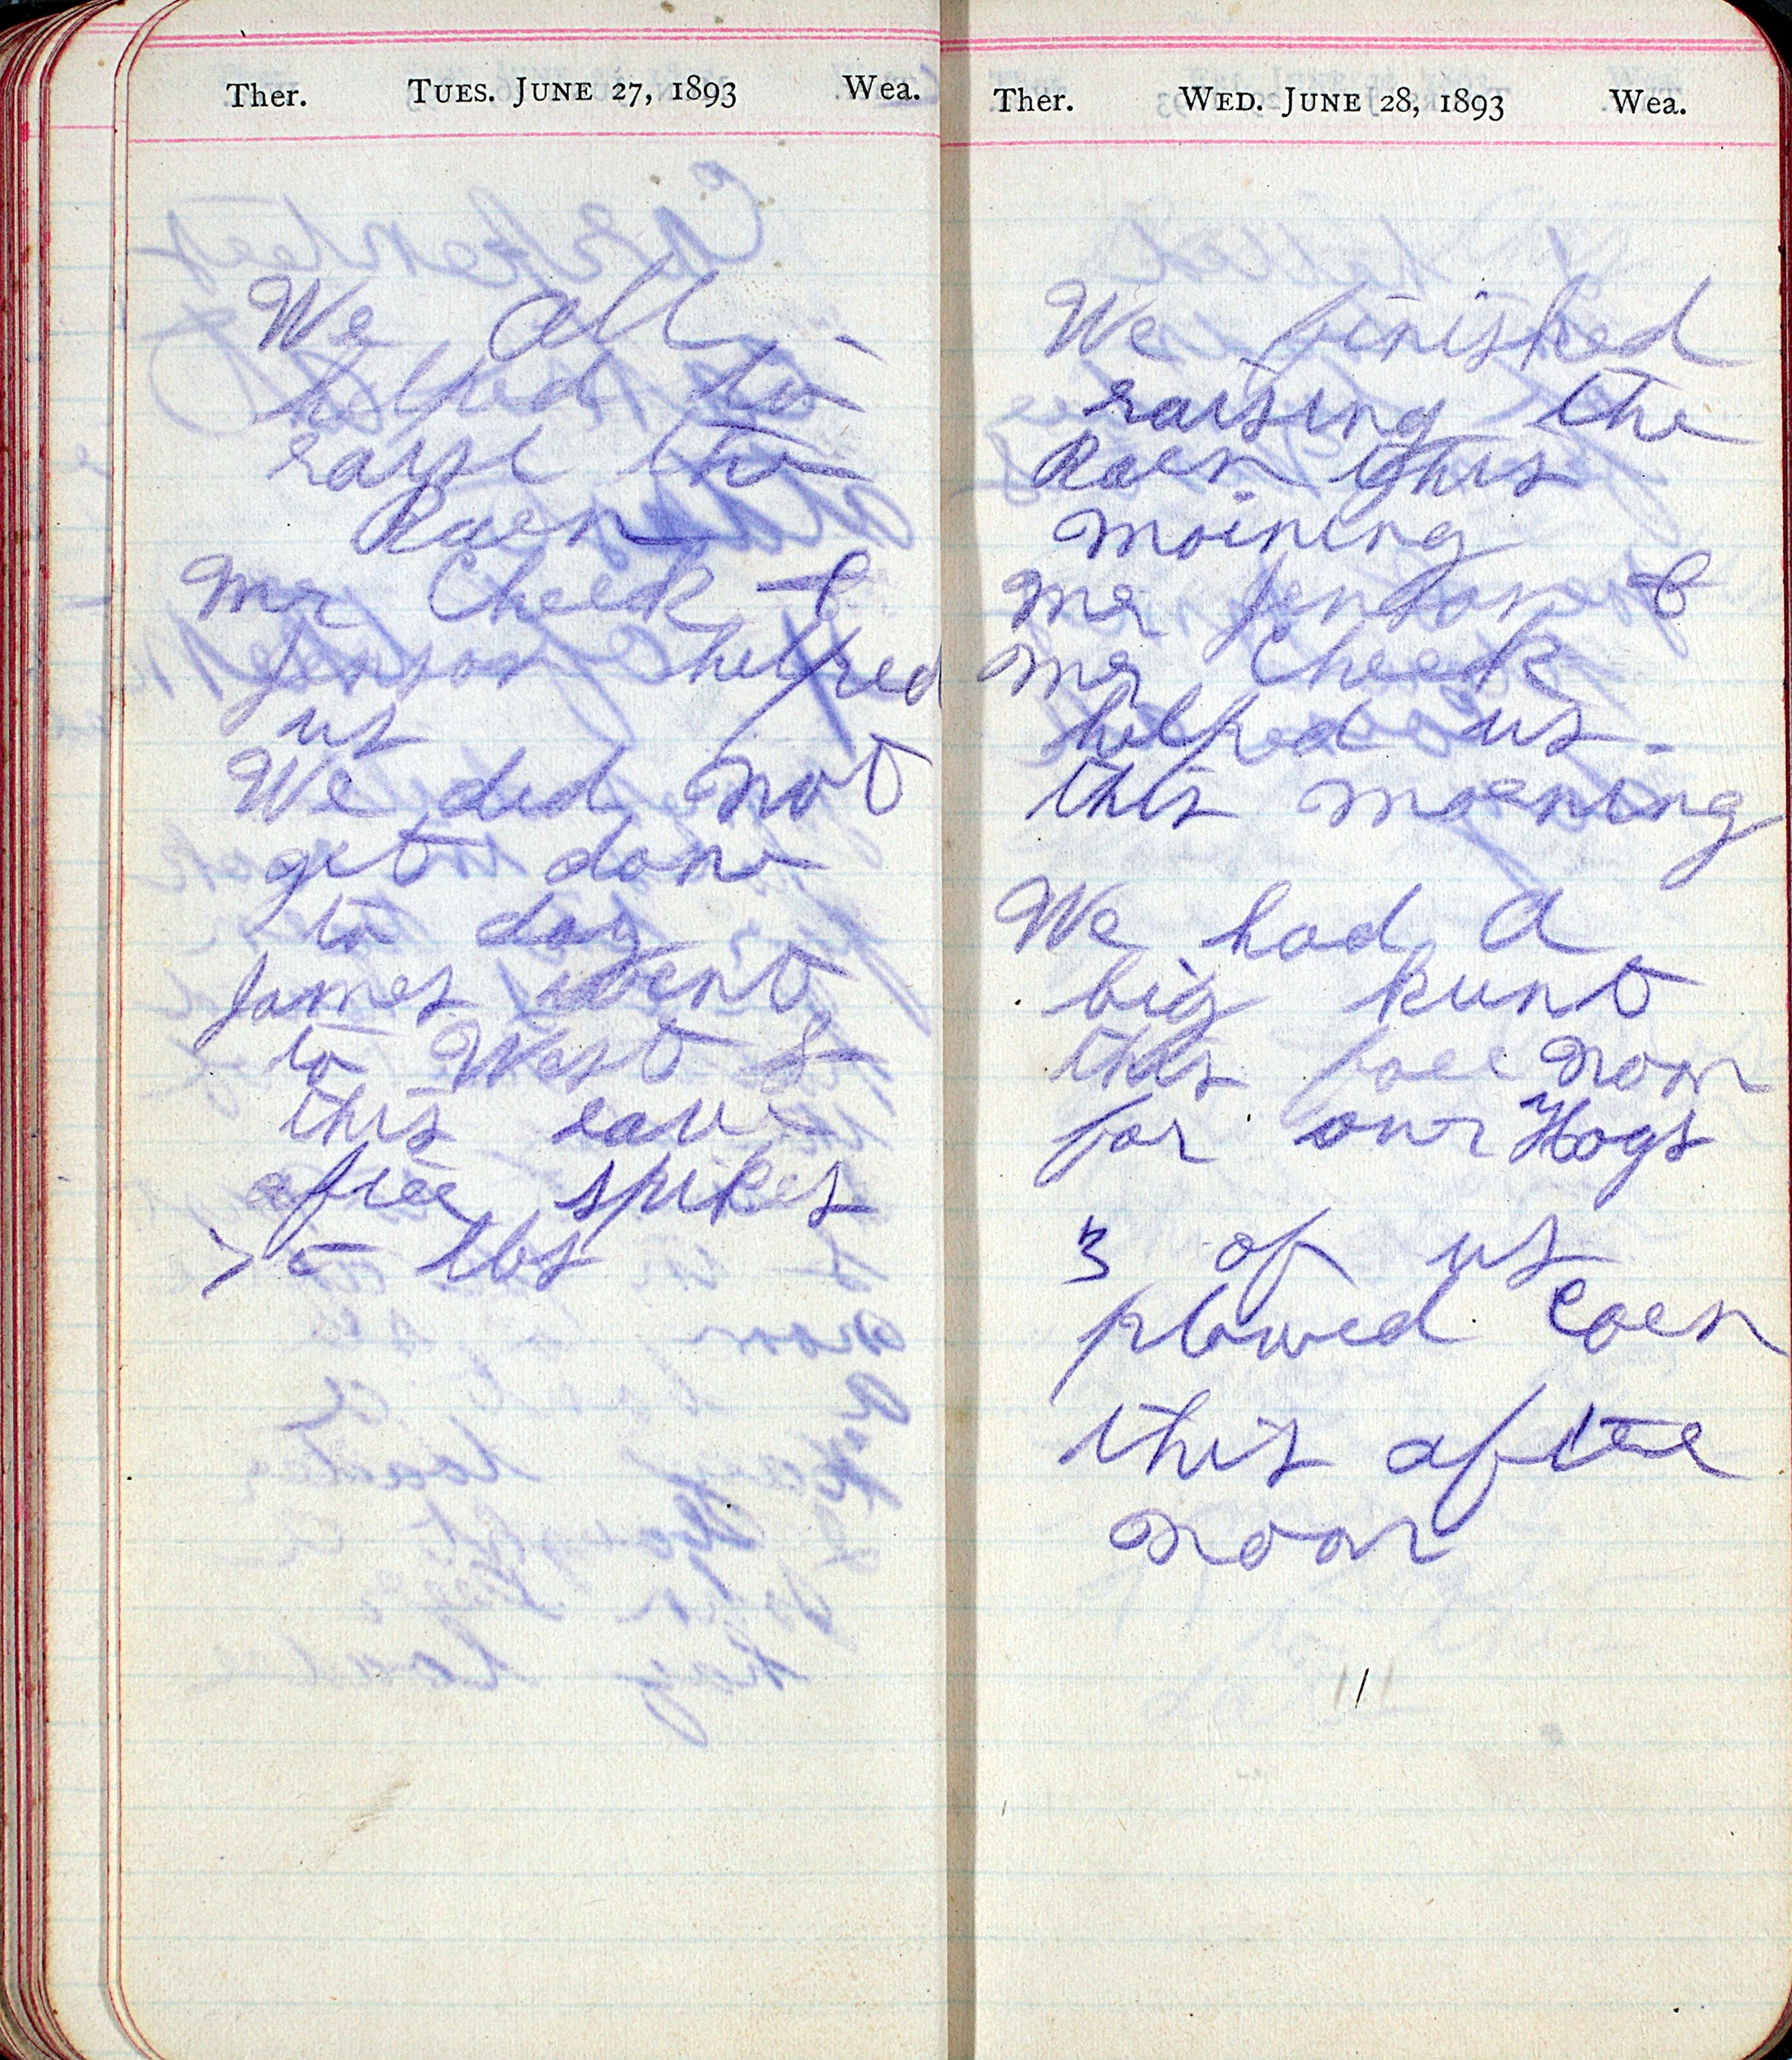 Ther. TUES. JUNE 27, 1893 Wea.
We all
helped to
raise the
Barn
Mr Cheek &
Jenson helped
us
We did not
get done
to day
James went
to West
this eav
after spikes
lbs
Ther. WED. JUNE 28, 1893 Wea.
We finished
raising the
Barn this
morning
Mr Jenson &
Mr Cheek
helped us
this morning
We had a
big hunt
this fore noon
for our Hogs
3 of us
plowed Corn
this after
noon